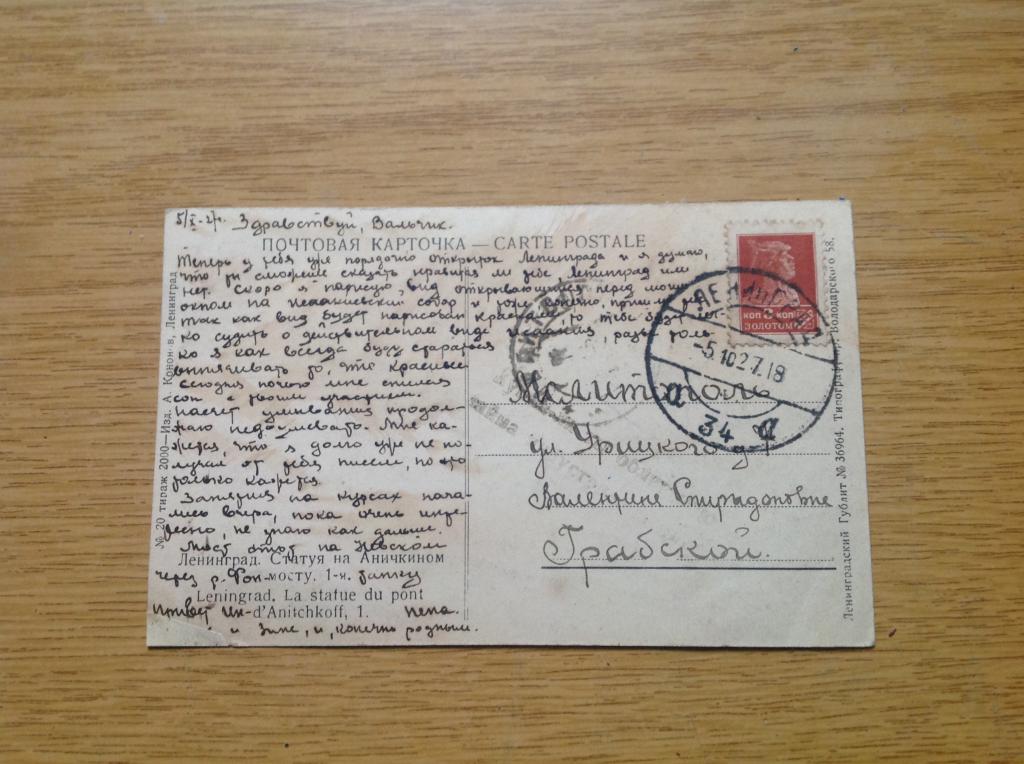 5/X-27г. Здравствуй, Вальчик.
ПОЧТОВАЯ КАРТОЧКА — CARTE POSTALE
Теперь у тебя уже порядочно открыток Ленинграда и я думаю,
что ты сможешь сказать нравится ли тебе Ленинград или
нет. Скоро я нарисую, вид открывающийся перед моим
окном на Исаакиевский собор и тоже, конечно,
так как вид будет нарисован красками, то тебе будет
ко судить о действительном виде Исаакия, разве толь-
ко я как всегда буду стараться
то, что красивее
сегодня ночью мне снился
сон с твоим участием.
Насчет умывания продол-
жаю недоумевать. Мне ка-
жется, что я долго уже не по-
лучал от тебя писем, но это
только кажется.
Занятия на курсах нача-
лись вчера, пока очень инте-
ресно, не знаю как дальше.
Мост этот на Невском
Ленинград. Статуя на Аничкином
через р. Фон-
мосту, 1-я.
Leningrad. La statue du pont
d'Anitchkoff, 1.
Привет
и Зине, и, конечно родным.
№ 20 тираж 2000—Изд. А. Кононов, Ленинград
КОП 8 КОП
ЗОЛОТОМ
ЛЕНИНГРАД
-5.10.27.18
34
Мелитополь
ул. Урицкого д 1
Валентине Спиридоновне
Грабской.
Ленинградский Гублит № 36964. Володарского 58.